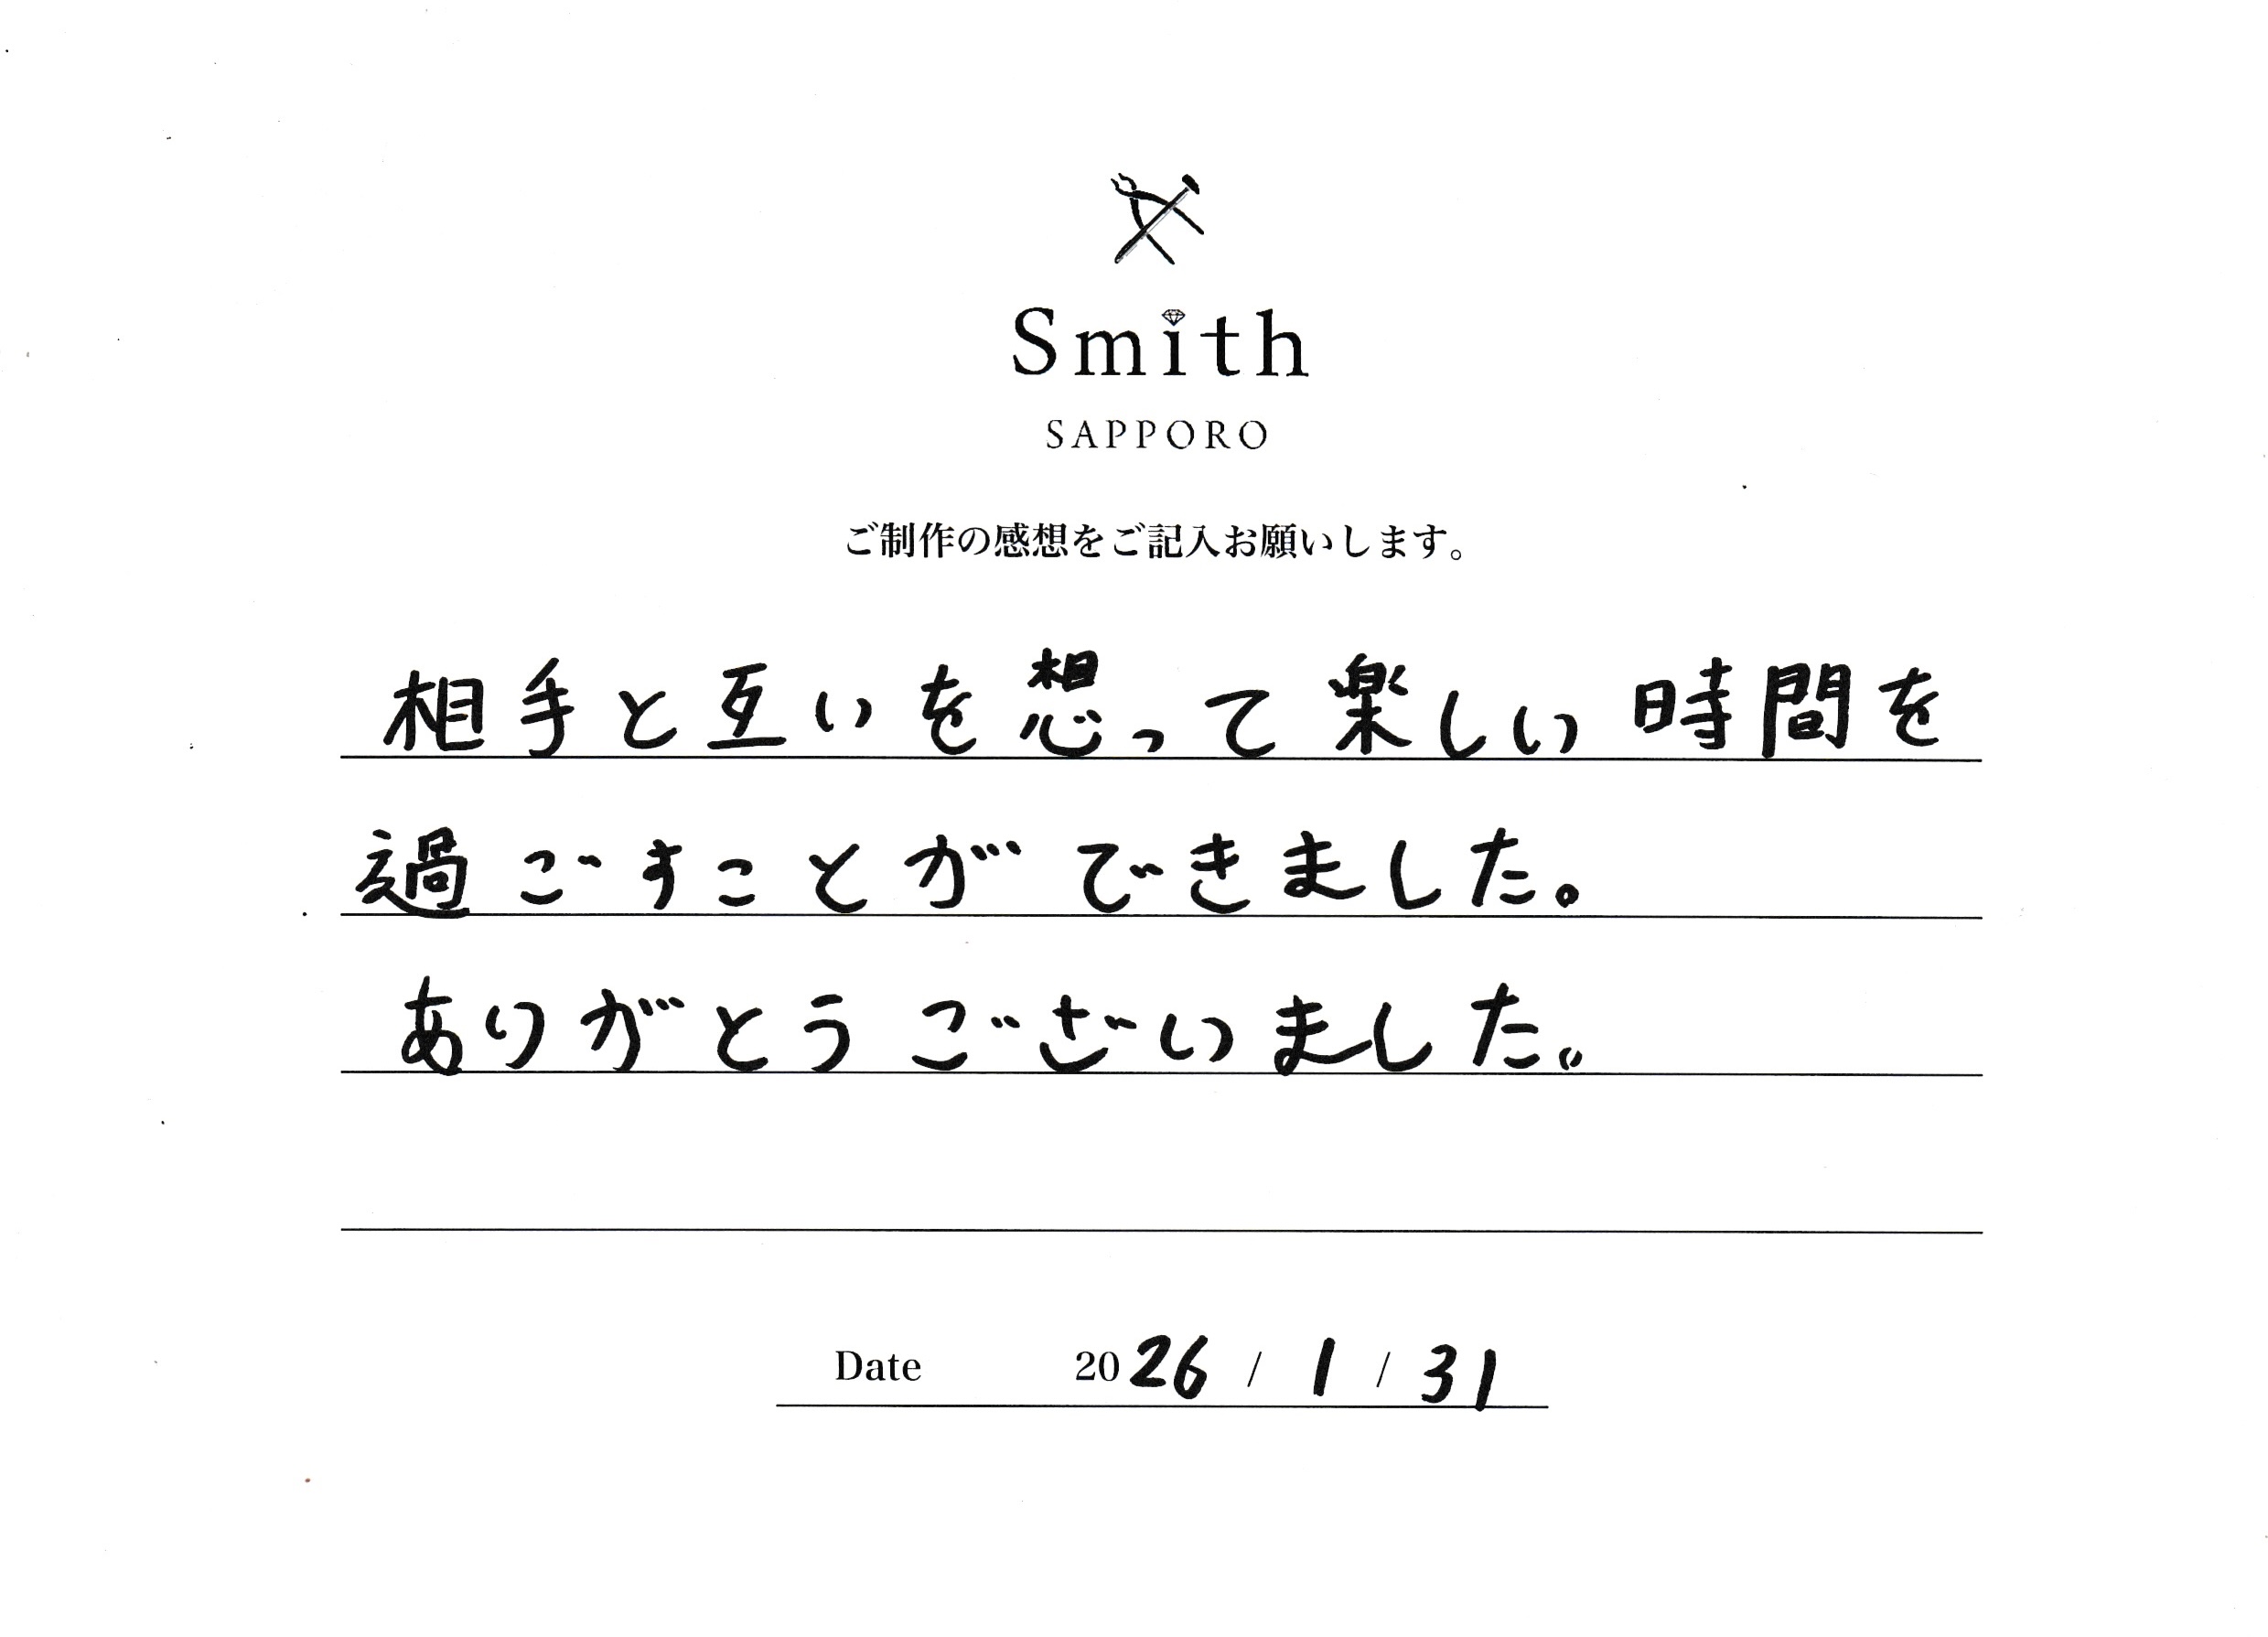 Smith
SAPPORO
ご制作の感想をご記入お願いします。
相手と互いを想って楽しい時間を
過ごすことができました。
ありがとうございました。
Date 2026 / 1 / 31